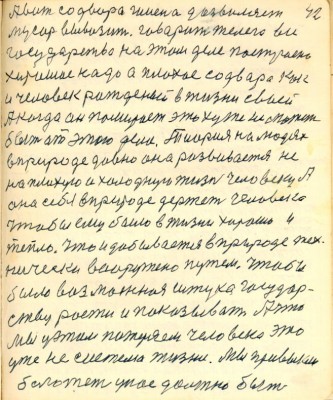 42
А вот со двора гигиена дозволяет
мусор вывозить. говорит тело вы
государство на этом деле построено
хорошое надо а плохое со двора Как
и человек рожденый в жизни своей
А когда он помирает это уже не
быт от этого дела, Тиория на людях
в природе довно она розвивается не
на плихую и холодную жизн человеку А
она себе в природе держет человека
чтобы ему было в жизни хорошо и
тепло. Что и добивается в природе тех-
нически вооружено путем. чтобы
было возможная штука государ-
ству рости и показывать А то
мы у этом потеряем человека это
уже не система жизни. Мы привыкли
болотет умое должно быт